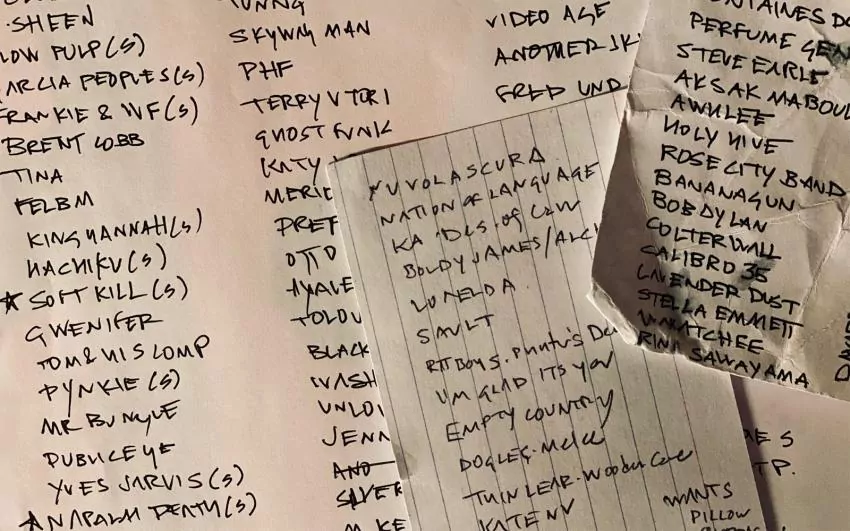 SHEEN
LOW PULP(S)
ARCIA PEOPLES(S)
FRANKIE & WF(S)
BRENT COBB
TINA
FELBM
KING HANNAH(S)
HACHIKU(S)
★ SOFT KILL(S)
GWENIFER
TOM & HIS COMP
PYNKIE(S)
MR BUNGLE
PUBLIC EYE
YVES JARVIS(S)
★ NAPALM DEATH(S)
SKYWAY MAN
PHF
TERRY V TORI
GHOST FUNK
KATY
MERID
PREF
OTTO
AYALE
TOLOU
BLACK
WASH
UNLO
JENN
AND
SILVER
MIKE
VIDEO AGE
ANOTHER SK
FRED UND
NUVOLASCURA
NATION OF LANGUAGE
KA 'DCS. OF CAIN
BOLDY JAMES/ALC
LONELDA
SAULT
RTJ BOYS. Punter's
I'M GLAD IT'S YOU
EMPTY COUNTRY
DOGLEG. Melee
TWIN LEAR. Wooden Core
KATE NV
WANTS
PILLOW
ONTAINES D
PERFUME GEN
STEVE EARLE
AKSAK MABOUL
AWHLEE
HOLY HIVE
ROSE CITY BAND
BANANAGUN
BOB DYLAN
COLTER WALL
CALIBRO 35
LAVENDER DUST
STELLA EMMETT
WNATCHEE
RINA SAWAYAMA
ES
TP.